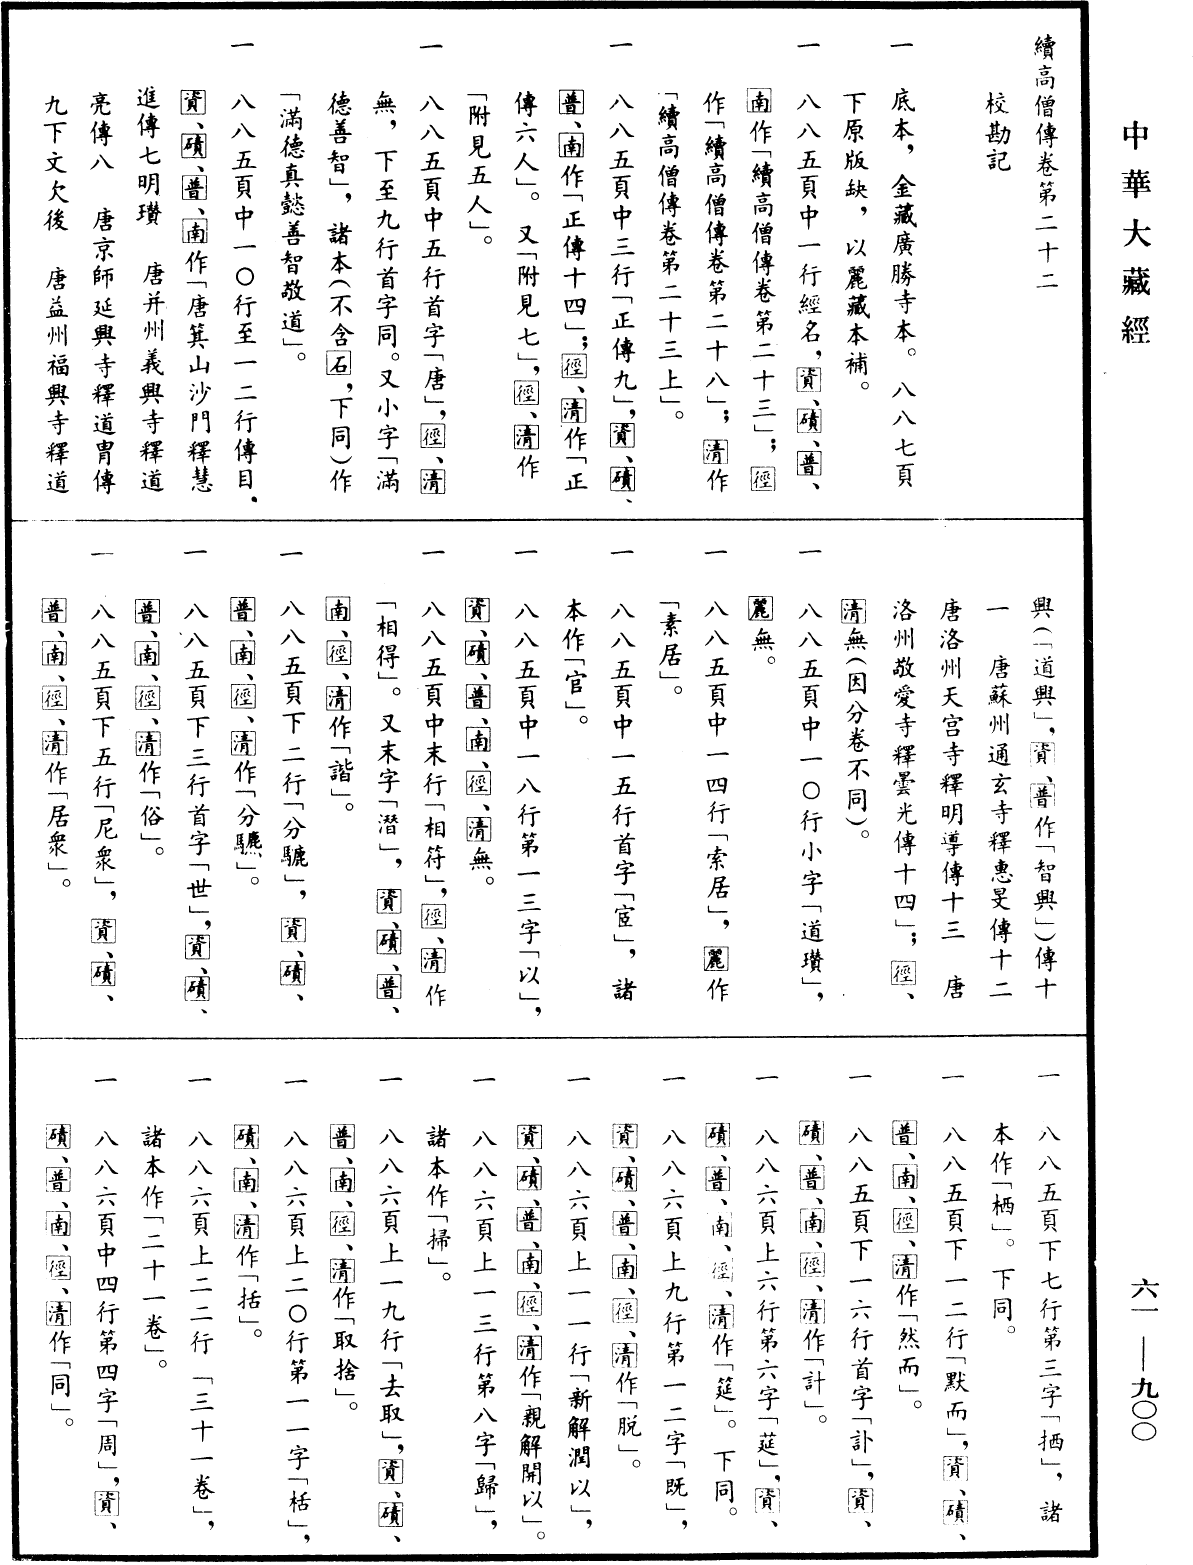 中華大藏經
六一—九〇〇
續高僧傳卷第二十二
校勘記
一 底本，金藏廣勝寺本。八八七頁
下原版缺，以麗藏本補。
一 八八五頁中一行經名，資、磧、普、
南作「續高僧傳卷第二十三」；徑
作「續高僧傳卷第二十八」；清作
「續高僧傳卷第二十三上」。
一 八八五頁中三行「正傳九」，資、磧、
普、南作「正傳十四」；徑、清作「正
傳六人」。又「附見七」，徑、清作
「附見五人」。
一 八八五頁中五行首字「唐」，徑、清
無，下至九行首字同。又小字「滿
德善智」，諸本（不含石，下同）作
「滿德真懿善智敬道」。
一 八八五頁中一〇行至一二行傳目，
資、磧、普、南作「唐箕山沙門釋慧
進傳七明瓚 唐并州義興寺釋道
亮傳八 唐京師延興寺釋道胄傳
九下文欠後 唐益州福興寺釋道
興（「道興」，資、普作「智興」）傳十
一 唐蘇州通玄寺釋惠旻傳十二
唐洛州天宮寺釋明導傳十三 唐
洛州敬愛寺釋曇光傳十四」；徑、
清無（因分卷不同）。
一 八八五頁中一〇行小字「道瓚」，
麗無。
一 八八五頁中一四行「索居」，麗作
「素居」。
一 八八五頁中一五行首字「宦」，諸
本作「官」。
一 八八五頁中一八行第一三字「以」，
資、磧、普、南、徑、清無。
一 八八五頁中末行「相符」，徑、清作
「相得」。又末字「潛」，資、磧、普、
南、徑、清作「諧」。
一 八八五頁下二行「分驢」，資、磧、
普、南、徑、清作「分驪」。
一 八八五頁下三行首字「世」，資、磧、
普、南、徑、清作「俗」。
一 八八五頁下五行「尼衆」，資、磧、
普、南、徑、清作「居衆」。
一 八八五頁下七行第三字「拪」，諸
本作「栖」。下同。
一 八八五頁下一二行「默而」，資、磧、
普、南、徑、清作「然而」。
一 八八五頁下一六行首字「訃」，資、
磧、普、南、徑、清作「計」。
一 八八六頁上六行第六字「莚」，資、
磧、普、南、徑、清作「筵」。下同。
一 八八六頁上九行第一二字「既」，
資、磧、普、南、徑、清作「脫」。
一 八八六頁上一一行「新解潤以」，
資、磧、普、南、徑、清作「親解開以」。
一 八八六頁上一三行第八字「歸」，
諸本作「掃」。
一 八八六頁上一九行「去取」，資、磧、
普、南、徑、清作「取捨」。
一 八八六頁上二〇行第一一字「栝」，
磧、南、清作「括」。
一 八八六頁上二二行「三十一卷」，
諸本作「二十一卷」。
一 八八六頁中四行第四字「周」，資、
磧、普、南、徑、清作「同」。